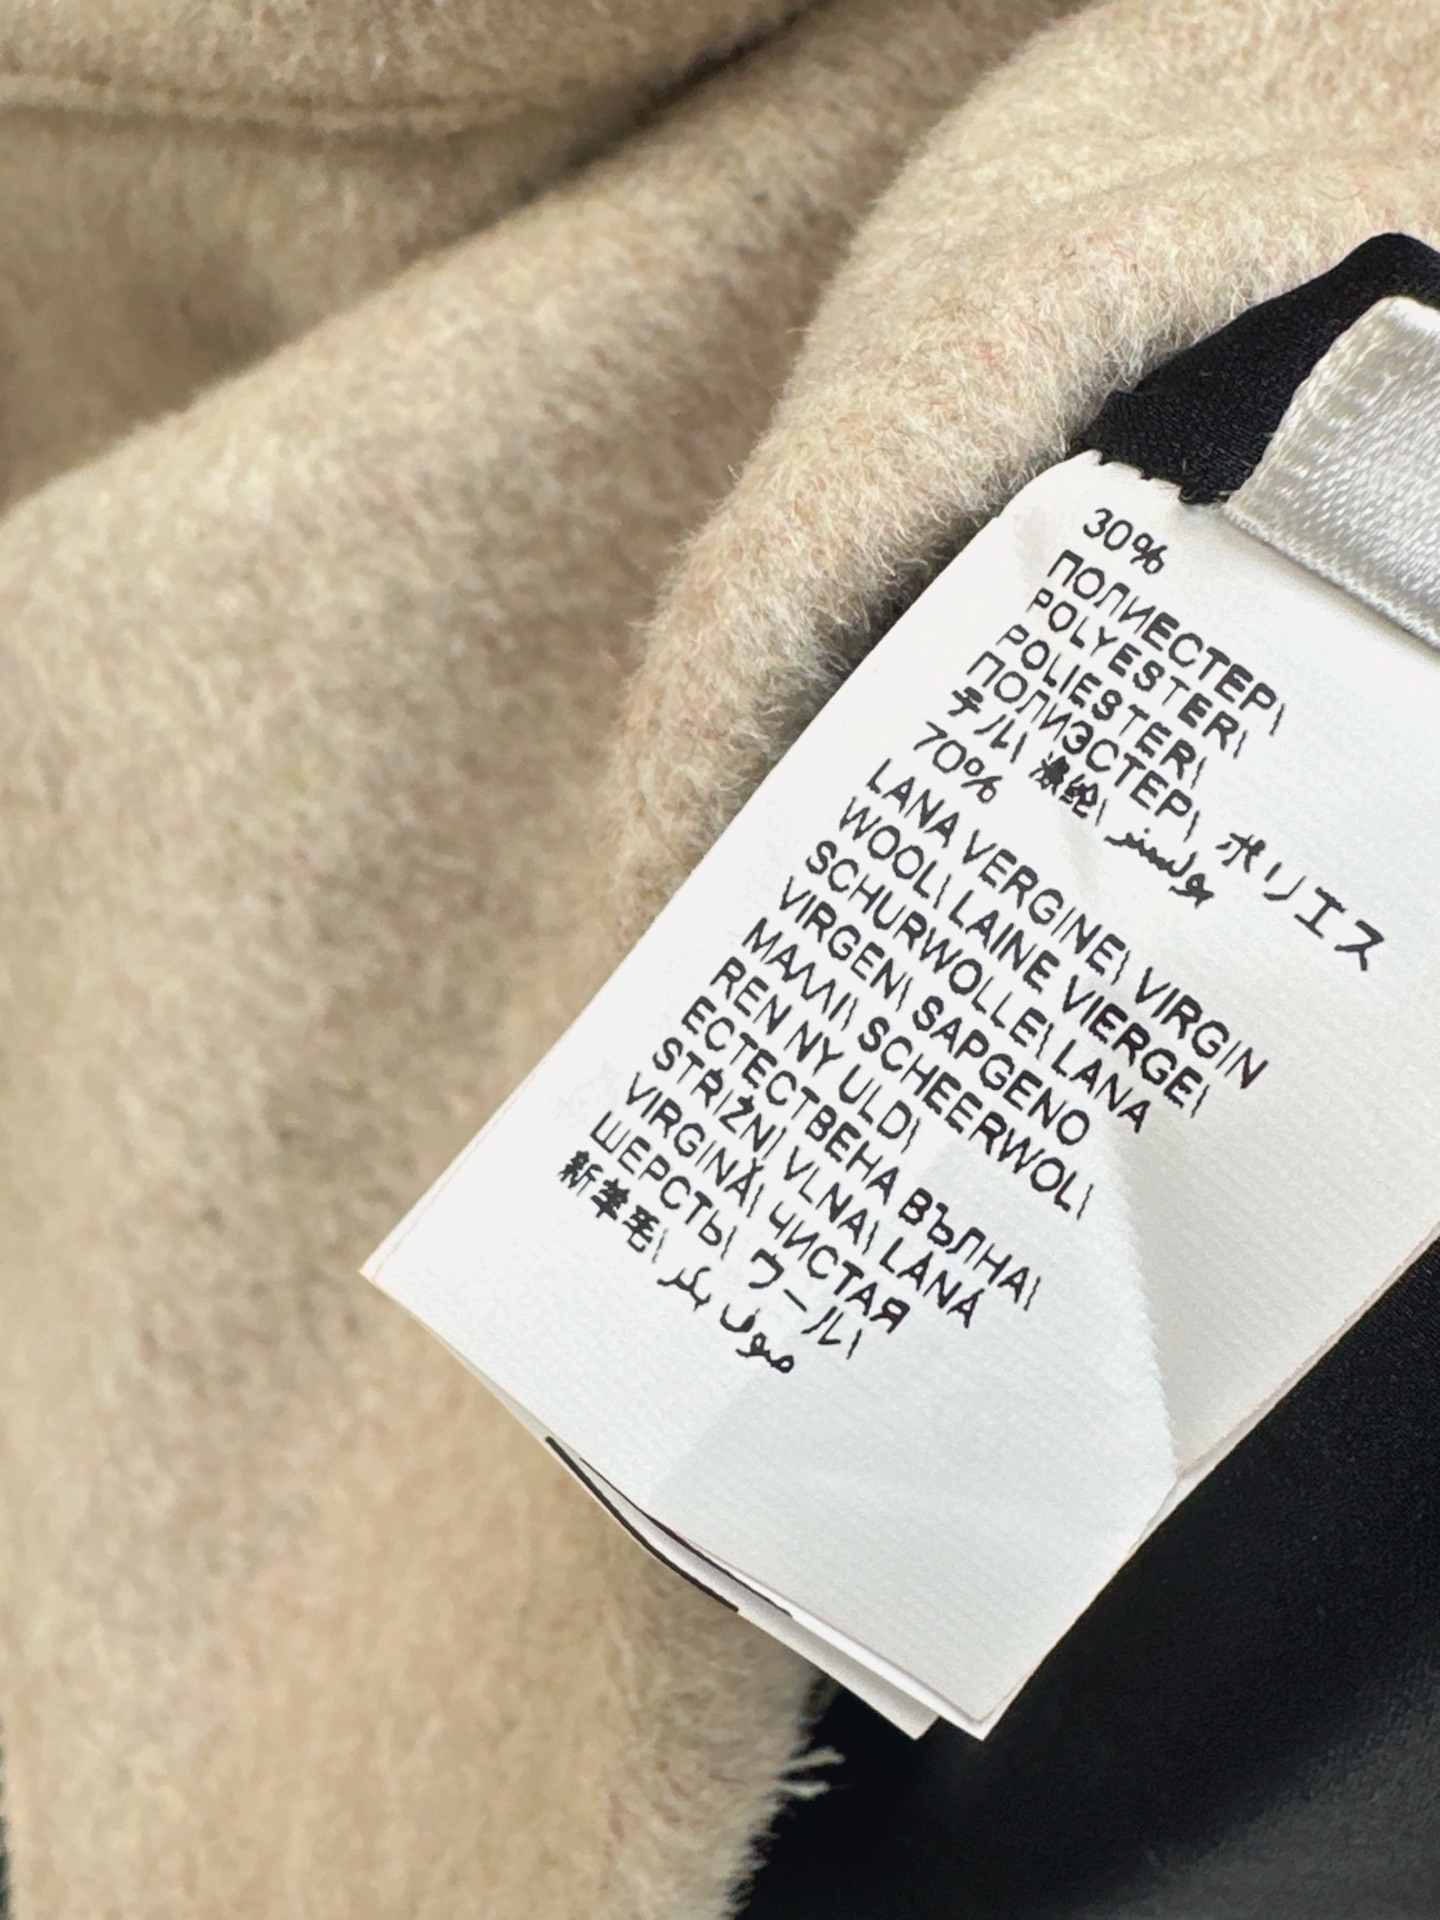 30%
ПОЛИЕСТЕР\
POLYESTER\
POLIESTER\
ПОЛИЭСТЕР\ ポリエス
テル\ 涤纶\ بوليستر
70%
LANA VERGINE\ VIRGIN
WOOL\ LAINE VIERGE\
SCHURWOLLE\ LANA
VIRGEN\ SAPGENO
ΜΑΛΛΙ\ SCHEERWOL\
REN NY ULD\
ЕСТЕСТВЕНА ВЪЛНА\
STŘIŽNÍ VLNA\ LÂNÂ
VIRGINĂ\ ЧИСТАЯ
ШЕРСТЬ\ ウール\
新羊毛\ صوف بكر